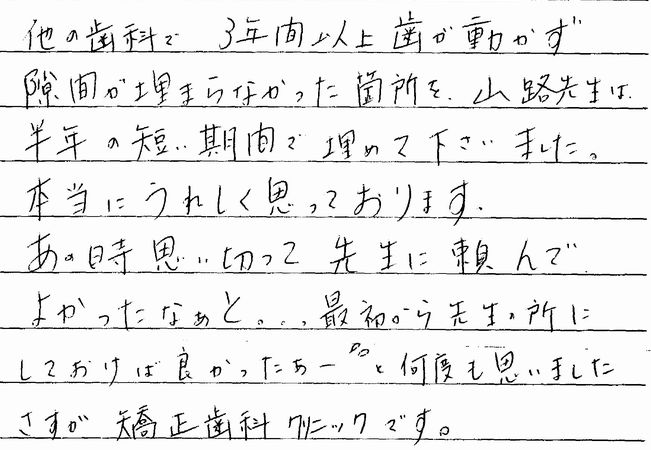 他の歯科で 3年間以上歯が動かず
隙間が埋まらなかった箇所を、山路先生は、
半年の短い期間で埋めて下さいました。
本当にうれしく思っております。
あの時思い切って先生に頼んで
よかったなぁと...最初から先生の所に
しておけば良かったぁー。。と何度も思いました
さすが矯正歯科クリニックです。